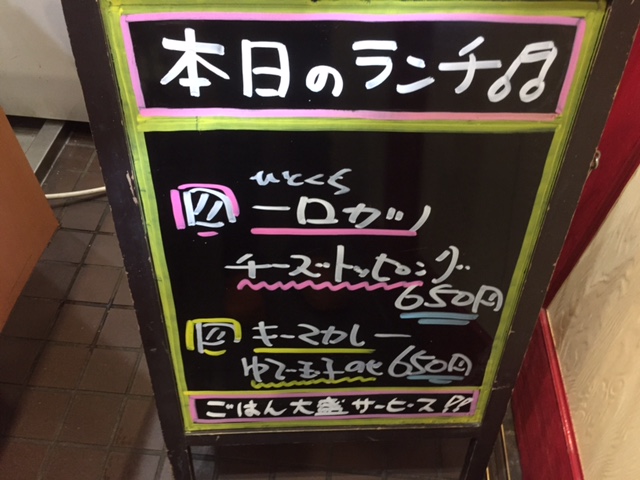 本日のランチ♫
ひとくち
一口カツ
チーズトッピング
650円
キーマカレー
ゆで玉子のせ 650円
ごはん大盛サービス!!